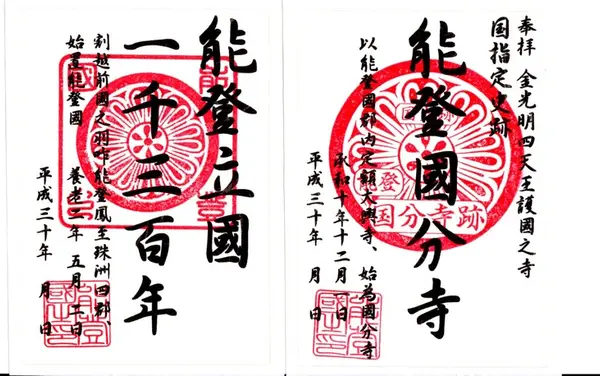 奉拝 金光明四天王護國之寺
国指定史跡
能登國分寺
以能登國郡内定額大興寺、始為國分寺
承和十年十二月一日
平成三十年 月 日
国分寺跡
能登立國
一千三百年
割越前國之羽咋能登鳳至珠洲四郡、
始置能登國 養老二年 五月二日
平成三十年 月 日